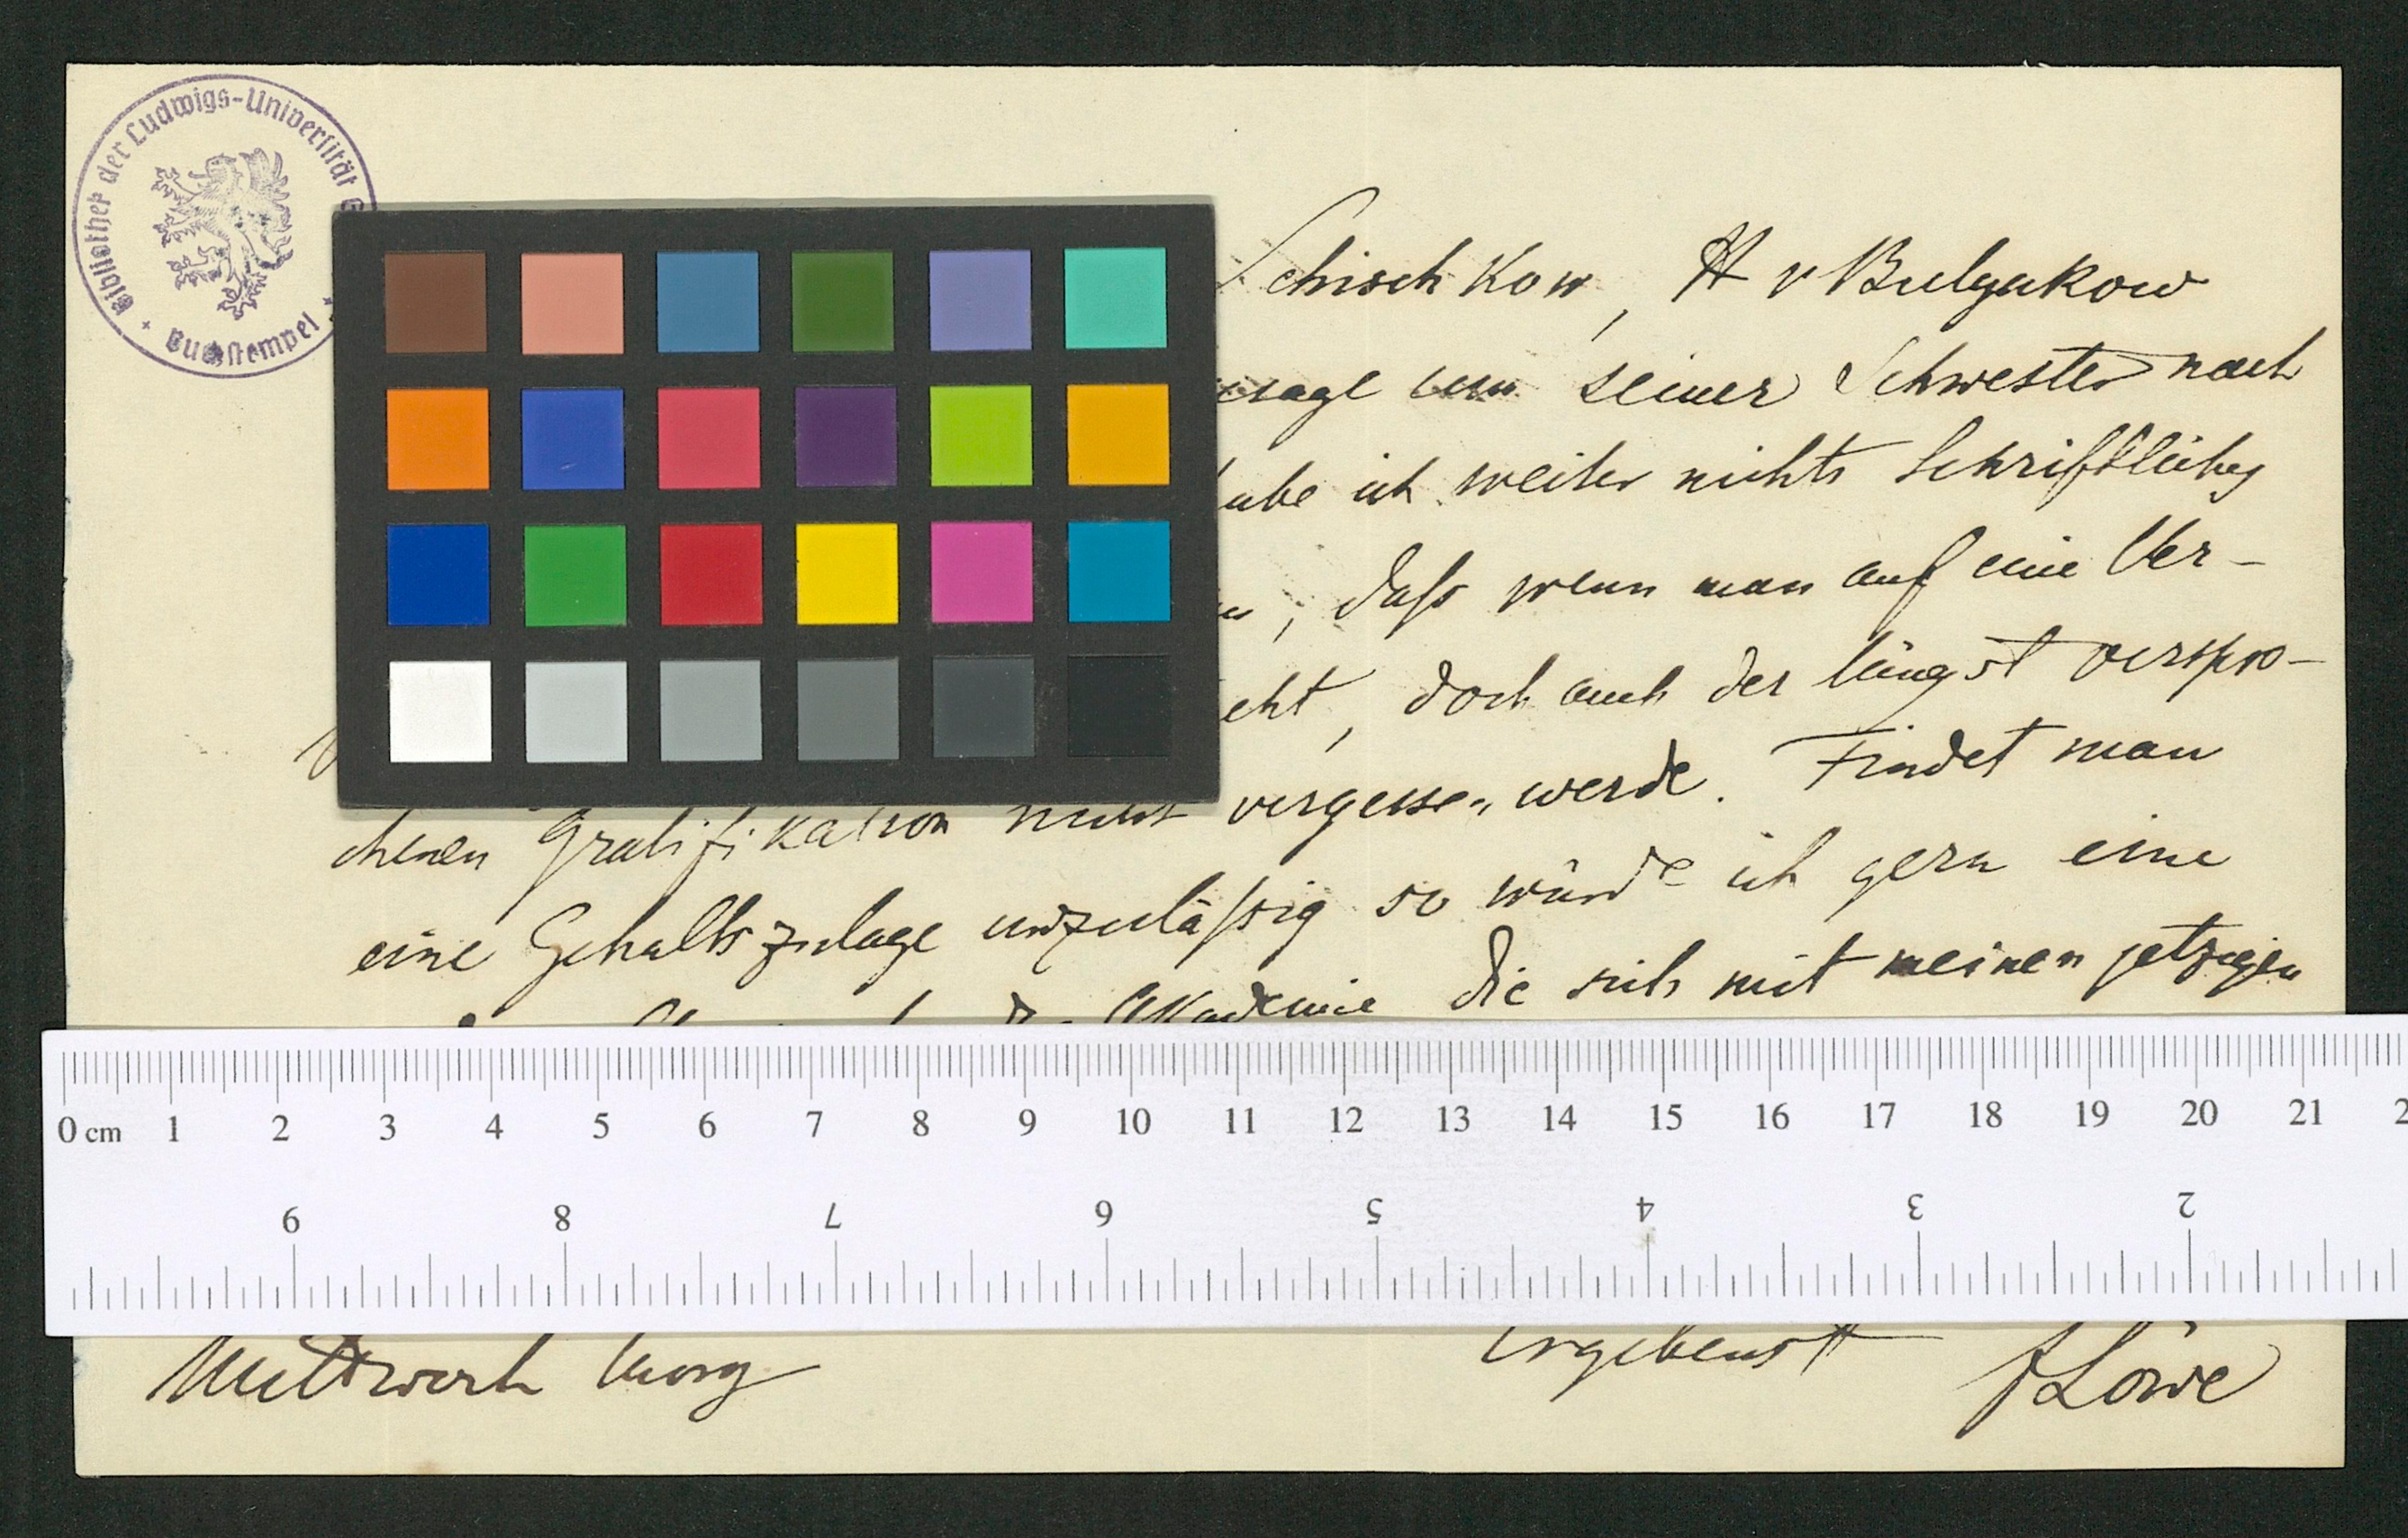 Bibliothek der Ludwigs-Universität
Buchstempel
Schischkow, H v Bulgakow
seiner Schwester nach
habe ich weiter nichts Schriftliches
, dass wenn man auf eine Ver-
doch auch der längst verspro-
chenen Gratifikation nicht vergessen werde. Findet man
eine Gehaltszulage unzulässig so würde ich gern eine
Akademie die sich mit meinen jetzigen
0 cm 1 2 3 4 5 6 7 8 9 10 11 12 13 14 15 16 17 18 19 20 21 2
9 8 7 6 5 4 3 2
Mittwoch Morg
Ergebenst
FLöwe